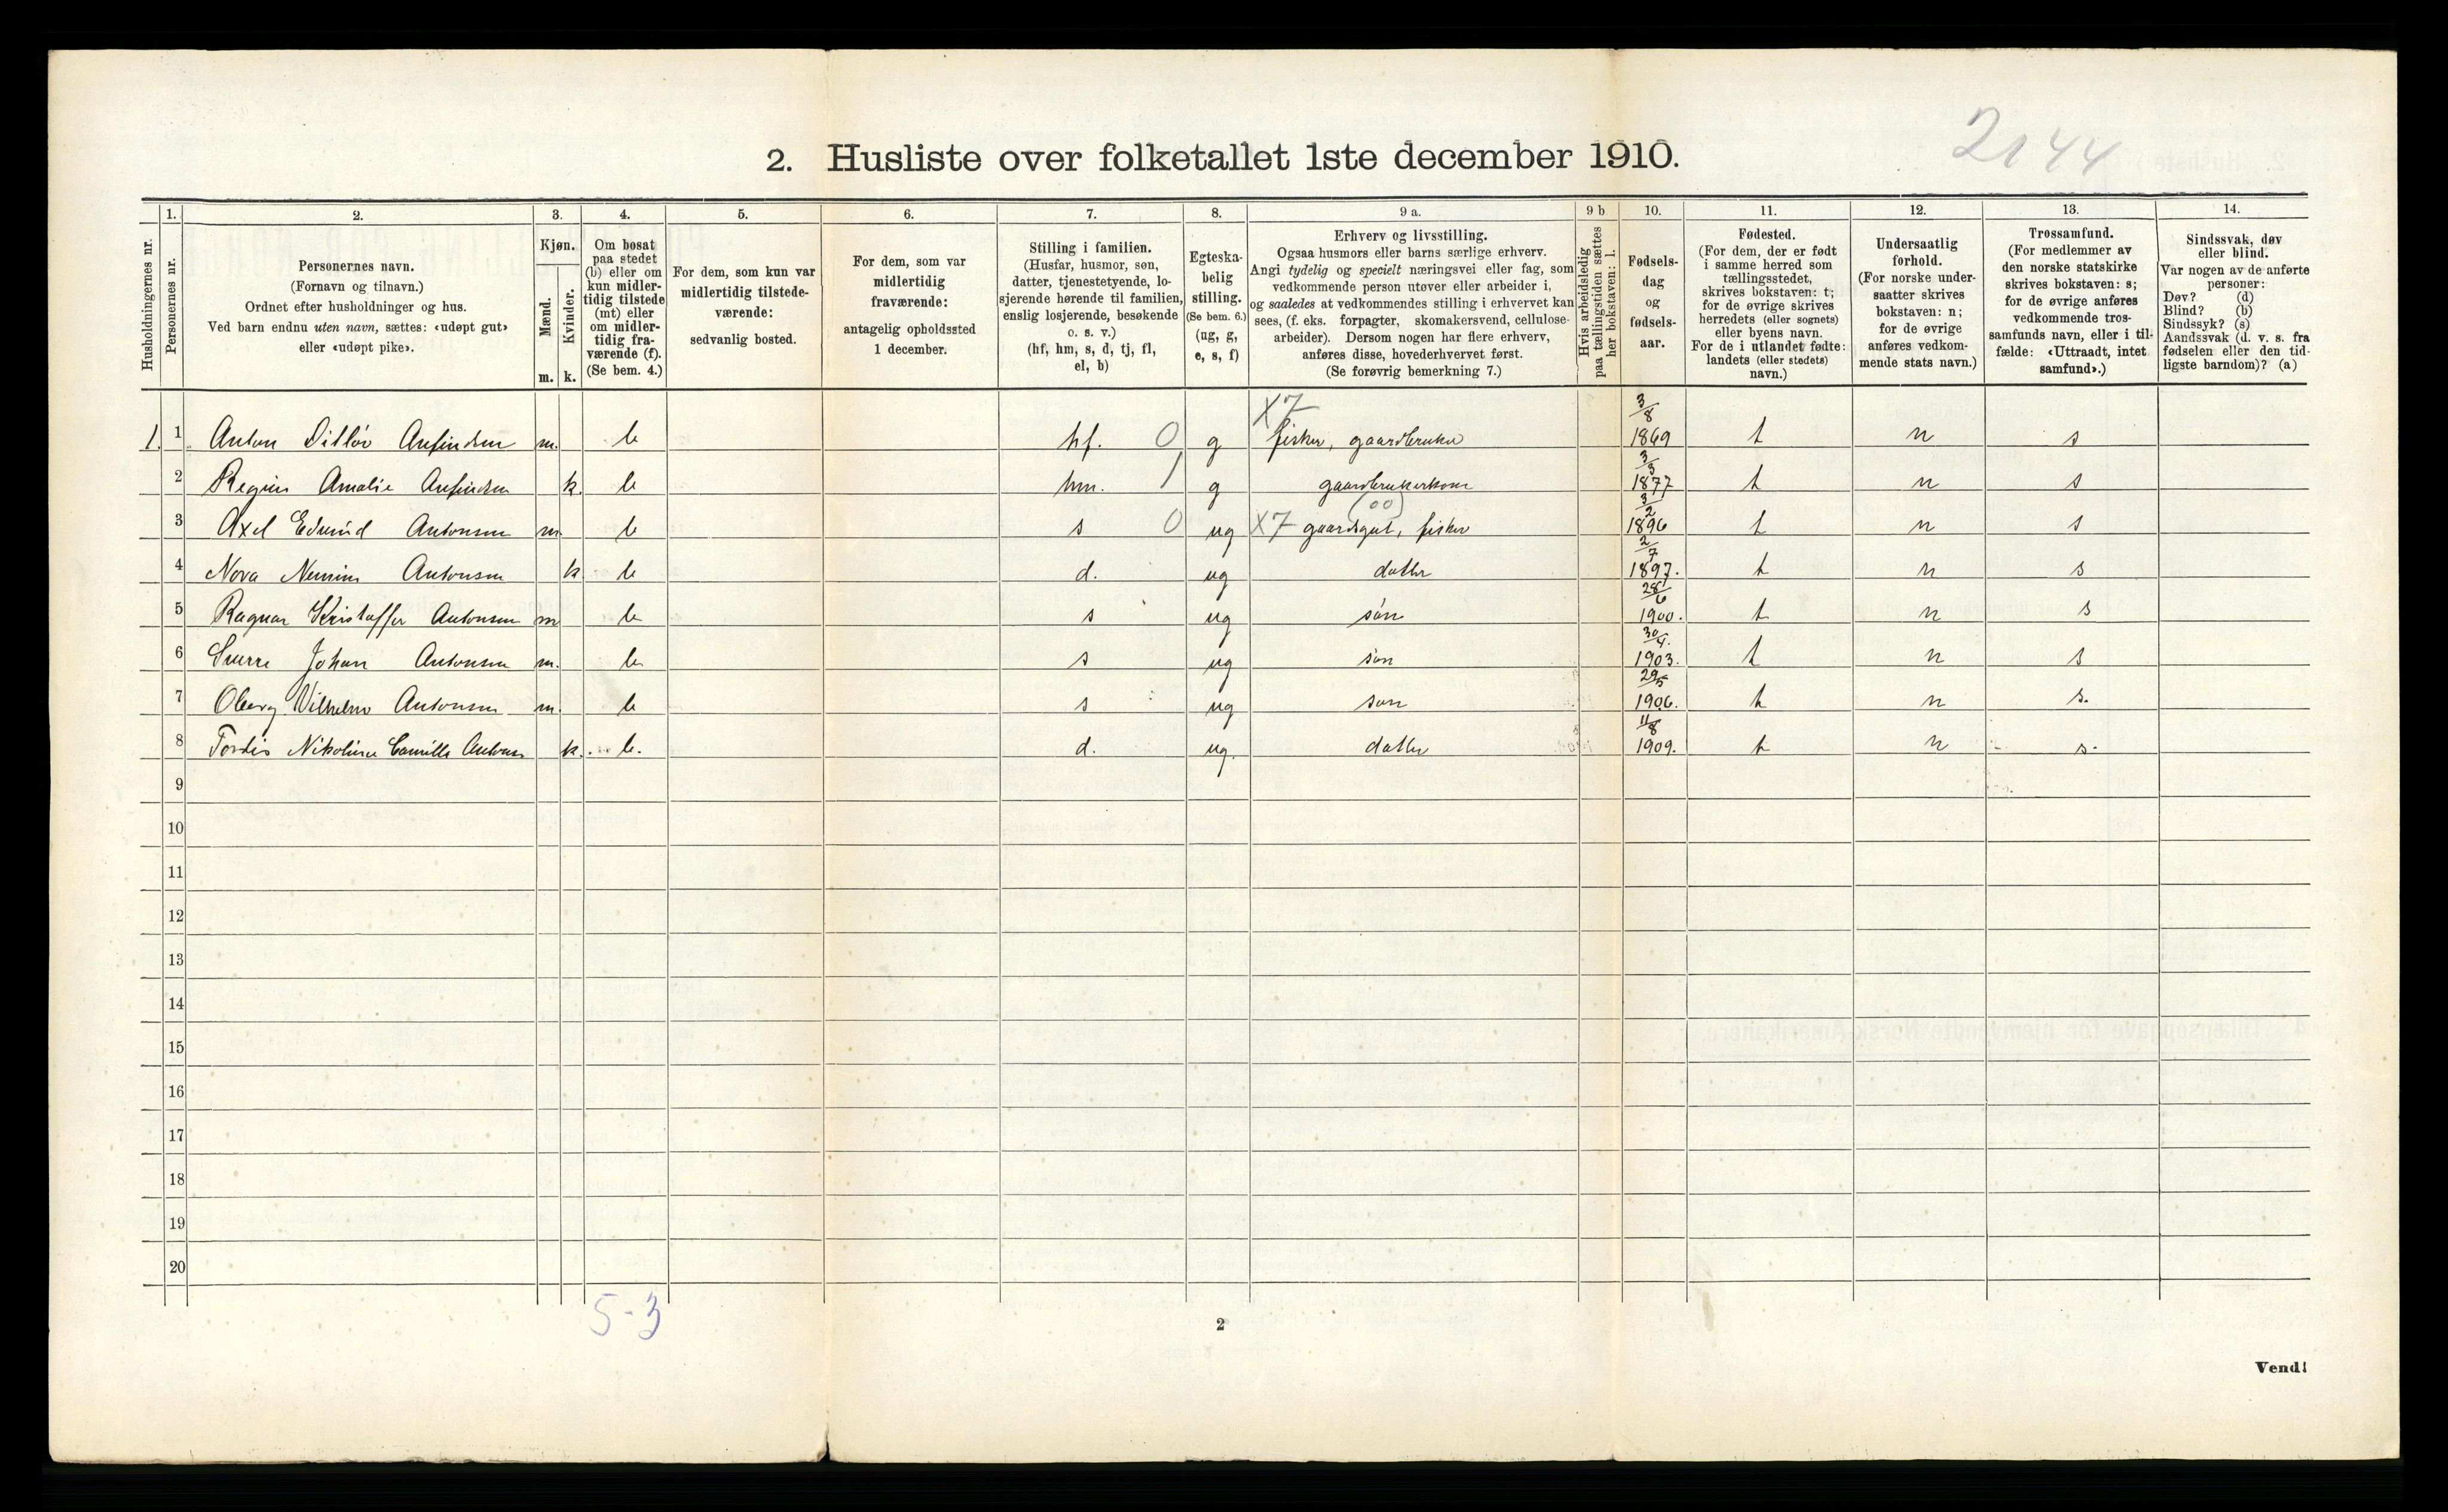 2144
2. Husliste over folketallet 1ste december 1910.
Husholdningernes nr.
1. Personernes nr.
2. Personernes navn.
(Fornavn og tilnavn.)
Ordnet efter husholdninger og hus.
Ved barn endnu uten navn, sættes: «udøpt gut»
eller «udøpt pike».
3. Kjøn.
Mænd. Kvinder.
m. k.
4. Om bosat
paa stedet
(b) eller om
kun midler-
tidig tilstede
(mt) eller
om midler-
tidig fra-
værende (f).
(Se bem. 4.)
5. For dem, som kun var
midlertidig tilstede-
værende:
sedvanlig bosted.
6. For dem, som var
midlertidig
fraværende:
antagelig opholdssted
1 december.
7. Stilling i familien.
(Husfar, husmor, søn,
datter, tjenestetyende, lo-
sjerende hørende til familien,
enslig losjerende, besøkende
o. s. v.)
(hf, hm, s, d, tj, fl,
el, b)
8. Egteska-
belig
stilling.
(Se bem. 6.)
(ug, g,
e, s, f)
9 a. Erhverv og livsstilling.
Ogsaa husmors eller barns særlige erhverv.
Angi tydelig og specielt næringsvei eller fag, som
vedkommende person utøver eller arbeider i,
og saaledes at vedkommendes stilling i erhvervet kan
sees, (f. eks. forpagter, skomakersvend, cellulose-
arbeider). Dersom nogen har flere erhverv,
anføres disse, hovederhvervet først.
(Se forøvrig bemerkning 7.)
9 b Hvis arbeidsledig
paa tællingstiden sættes
her bokstaven: l.
10. Fødsels-
dag
og
fødsels-
aar.
11. Fødested.
(For dem, der er født
i samme herred som
tællingsstedet,
skrives bokstaven: t;
for de øvrige skrives
herredets (eller sognets)
eller byens navn.
For de i utlandet fødte:
landets (eller stedets)
navn.)
12. Undersaatlig
forhold.
(For norske under-
saatter skrives
bokstaven: n;
for de øvrige
anføres vedkom-
mende stats navn.)
13. Trossamfund.
(For medlemmer av
den norske statskirke
skrives bokstaven: s;
for de øvrige anføres
vedkommende tros-
samfunds navn, eller i til-
fælde: «Uttraadt, intet
samfund».)
14. Sindssvak, døv
eller blind.
Var nogen av de anførte
personer:
Døv? (d)
Blind? (b)
Sindssyk? (s)
Aandssvak (d. v. s. fra
fødselen eller den tid-
ligste barndom)? (a)
1. 1 Anton Ditløv Anfindsen m. b hf. 0 g X7 fisker, gaardbruker 3/8 1869 t n s
2 Regine Amalie Anfindsen k. b hm. 1 g gaardbrukerkone 3/3 1877 t n s
3 Axel Edvind Antonsen m b s 0 ug X7 gaardsgut, (00) fisker 3/2 1896 t n s
4 Nova Antonsen k b d. ug datter 2/7 1897. t n s
5 Ragnar Kristoffer Antonsen m b s ug søn 28/6 1900. t n s
6 Sverre Johan Antonsen m. b s ug søn 30/4. 1903. t n s
7 Vilhelm Antonsen m. b s ug søn 29/5 1906. t n s.
8 Tordis Nikoline Camilla Antons k. b. d. ug. datter 11/8 1909. t n s.
9
10
11
12
13
14
15
16
17
18
19
20
5-3
2
Vend!